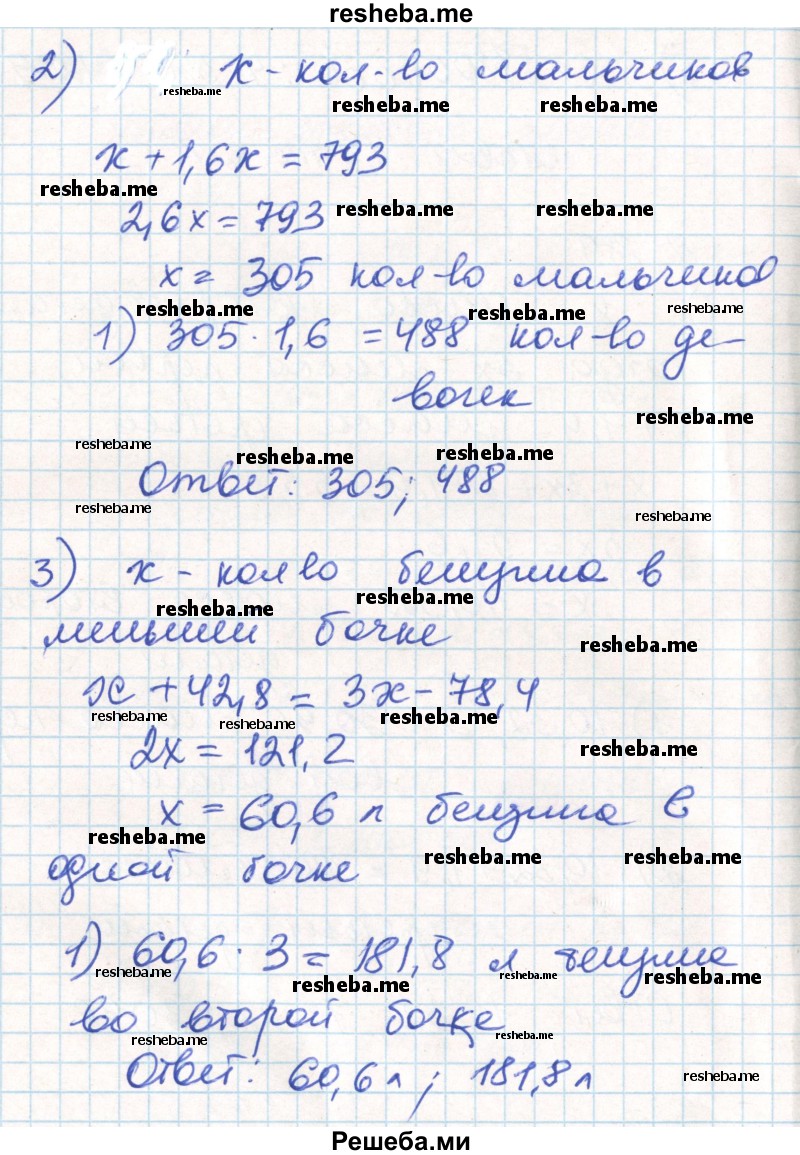 resheba.me
2) x - кол-во мальчиков
resheba.me
resheba.me resheba.me
x + 1,6x = 793
resheba.me
2,6x = 793 resheba.me resheba.me
x = 305 кол-во мальчиков
resheba.me resheba.me resheba.me
1) 305 · 1,6 = 488 кол-во де-
вочек
resheba.me
resheba.me resheba.me resheba.me
Ответ: 305; 488
resheba.me resheba.me
3) x - кол во бензина в
resheba.me resheba.me
меньшей бочке
resheba.me
x + 42,8 = 3x - 78,4
resheba.me resheba.me resheba.me
2x = 121,2
resheba.me
x = 60,6 л бензина в
resheba.me
одной бочке
resheba.me resheba.me
1) 60,6 · 3 = 181,8 л бензина
resheba.me resheba.me resheba.me resheba.me
во второй бочке
resheba.me resheba.me
Ответ: 60,6 л; 181,8 л
resheba.me
Решеба.ми